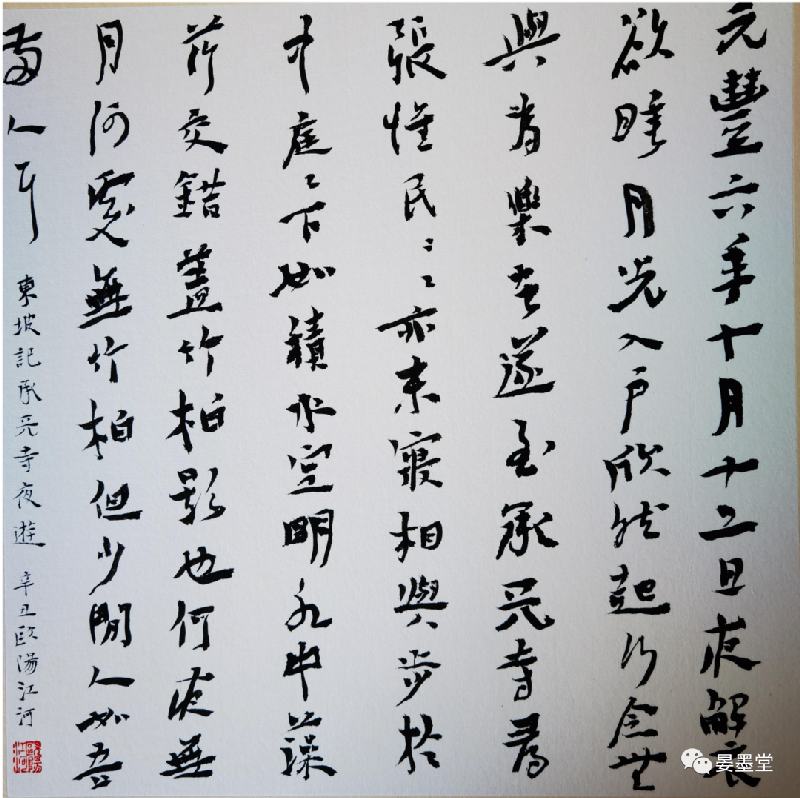 元豐六年十月十二日夜解衣
欲睡月光入户欣然起行念無
與為樂者遂至承天寺尋
張懷民〻〻亦未寢相與步於
中庭〻下如積水空明水中藻
荇交錯蓋竹柏影也何夜無
月何處無竹柏但少閒人如吾
兩人耳
東坡記承天寺夜遊 辛丑歐陽江河
歐陽江河
晏墨堂